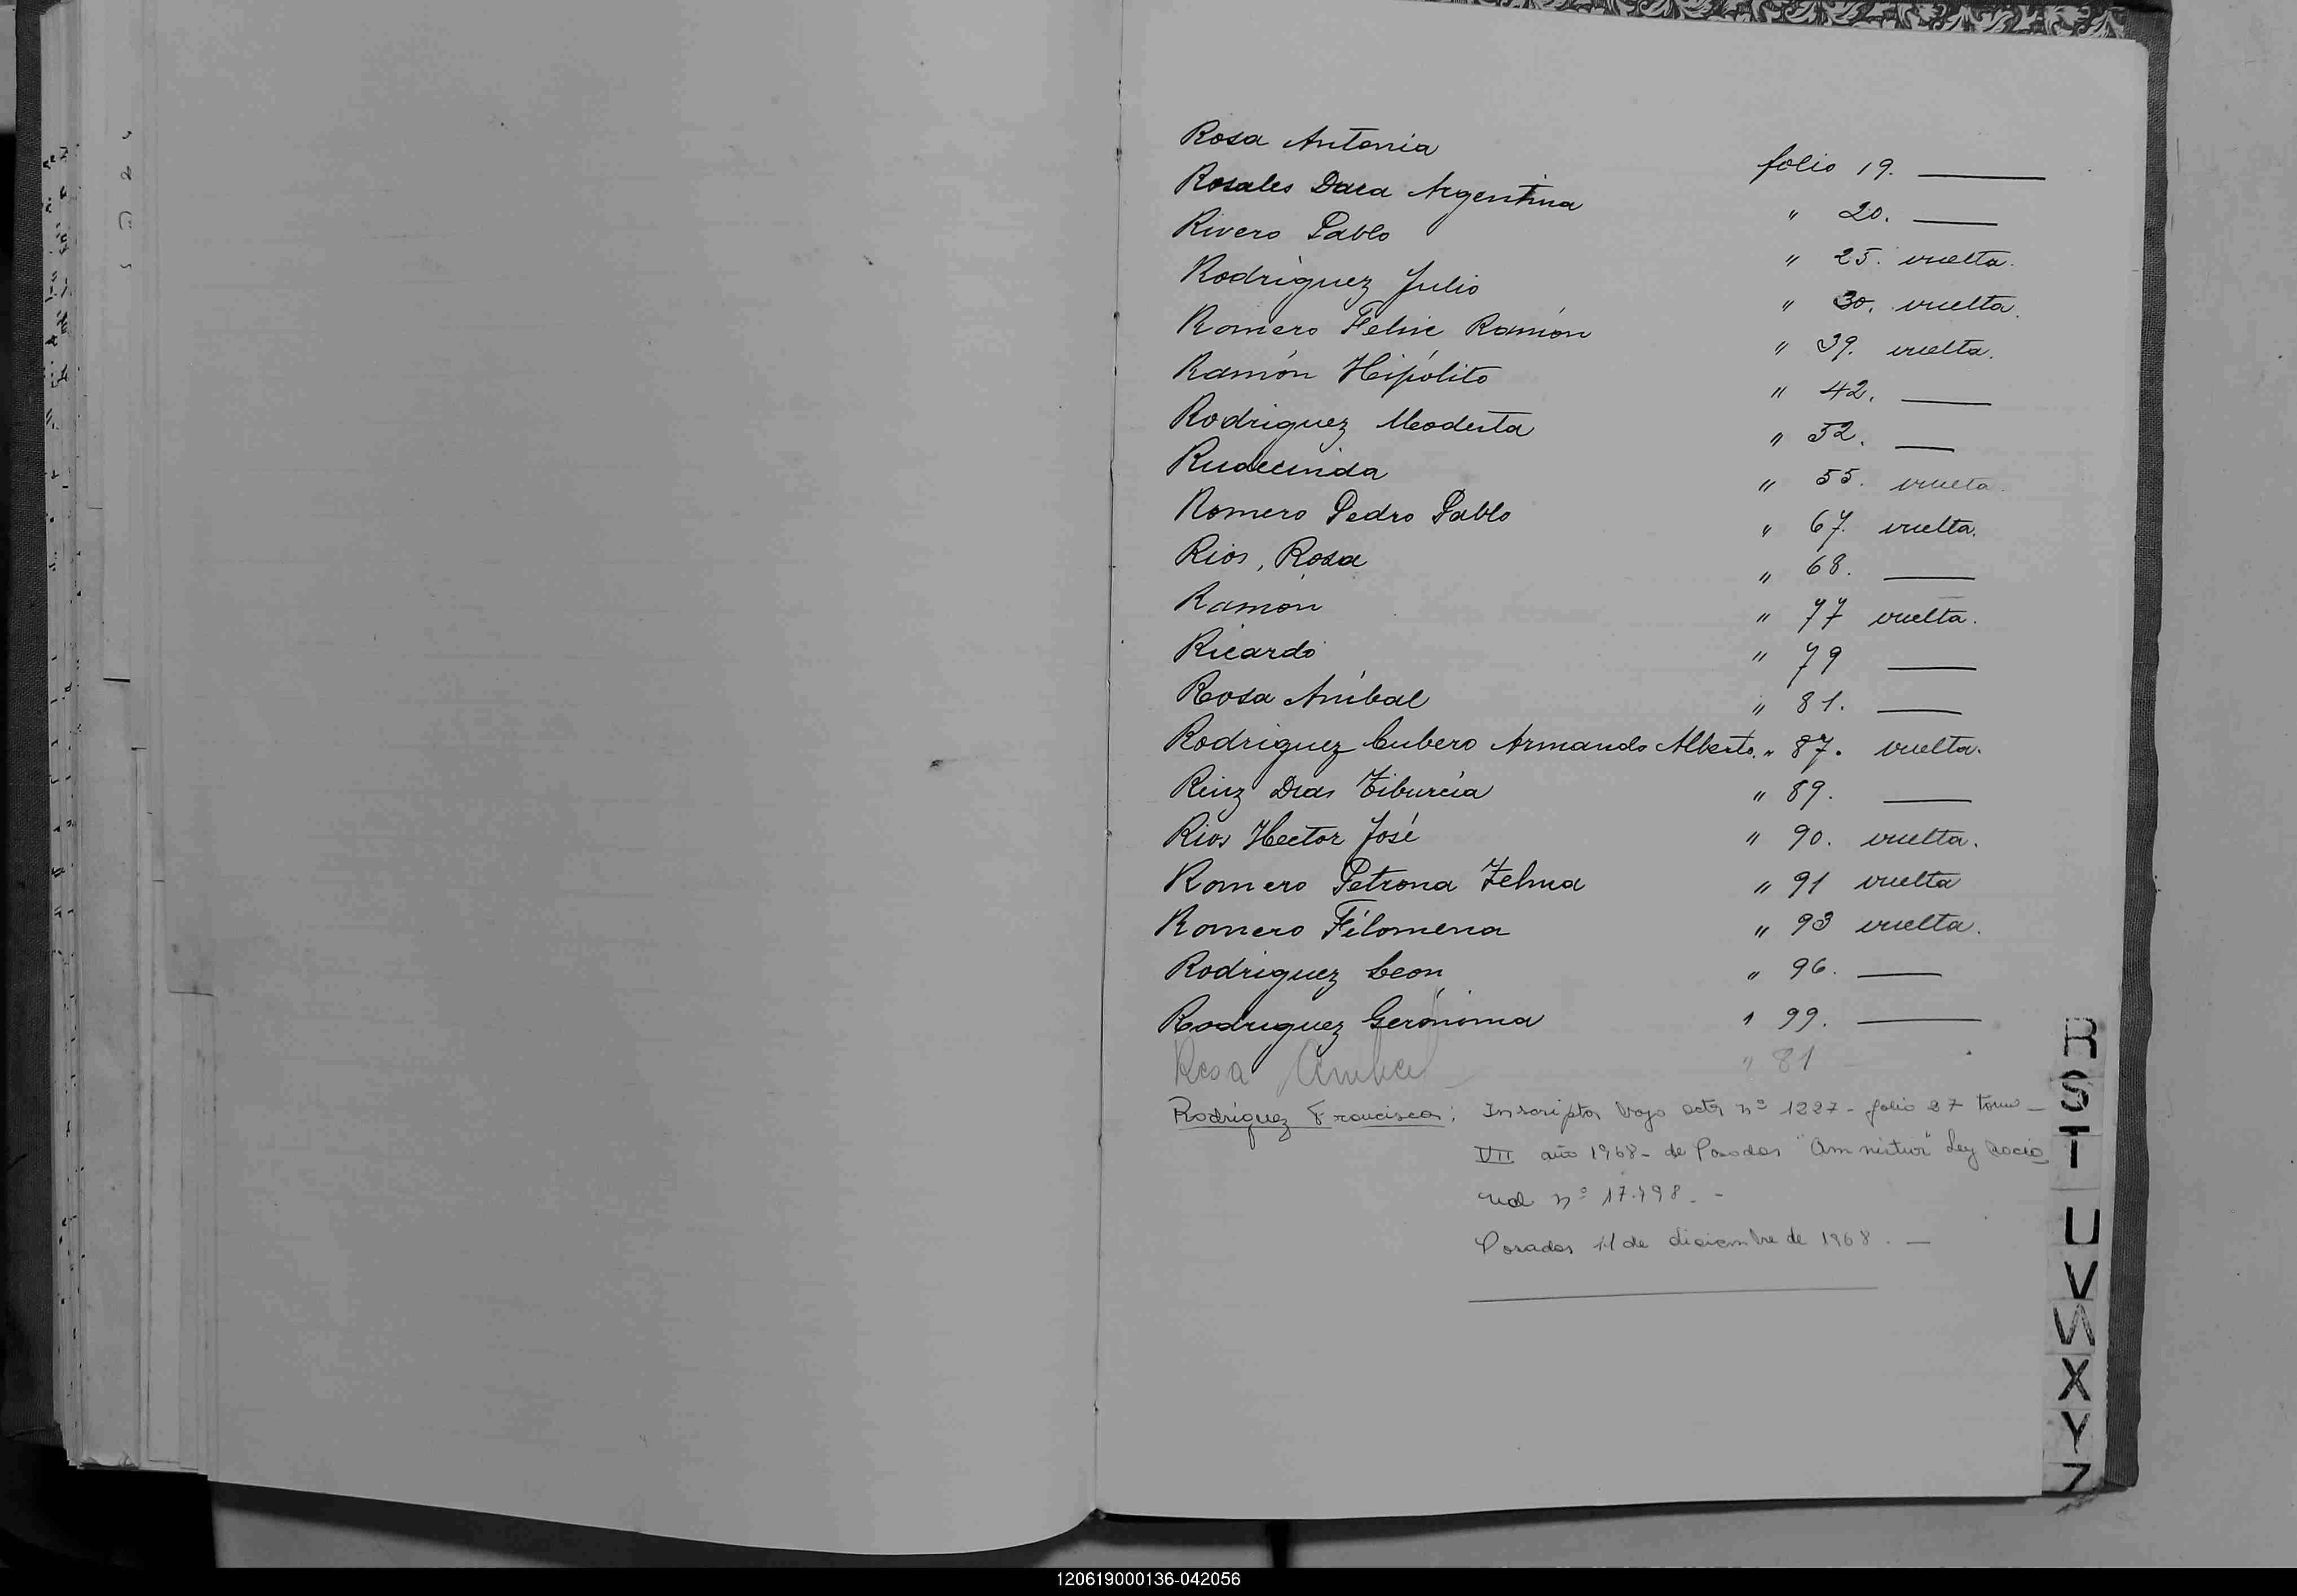 Rosa Antonia folio 19. ———
Rosales Dara Argentina " 20. ———
Rivero Pablo " 25. vuelta.
Rodriguez Julio " 30. vuelta.
Romero Felix Ramón " 39. vuelta.
Ramón Hipólito " 42. ———
Rodriguez Modesta " 52. ———
Rudecinda " 55. vuelta.
Romero Pedro Pablo " 67. vuelta.
Rios, Rosa " 68. ———
Ramón " 77 vuelta.
Ricardo " 79 ———
Rosa Anibal " 81. ———
Rodriguez Cubero Armando Alberto. " 87. vuelta.
Ruiz Dias Tiburcia " 89. ———
Rios Hector José " 90. vuelta.
Romero Petrona Zelma " 91 vuelta
Romero Filomena " 93 vuelta.
Rodriguez Leon " 96. ———
Rodriguez Gerónima " 99. ———
Rosa Anibal " 81
Rodríguez Francisca: Inscripta bajo acta nº 1227 - folio 27 tomo -
VII año 1968 - de Posadas "Amnistia" Ley Nacio
nal nº 17.498. -
Posadas 11 de diciembre de 1968. —
R
S
T
U
V
W
X
Y
Z
120619000136-042056